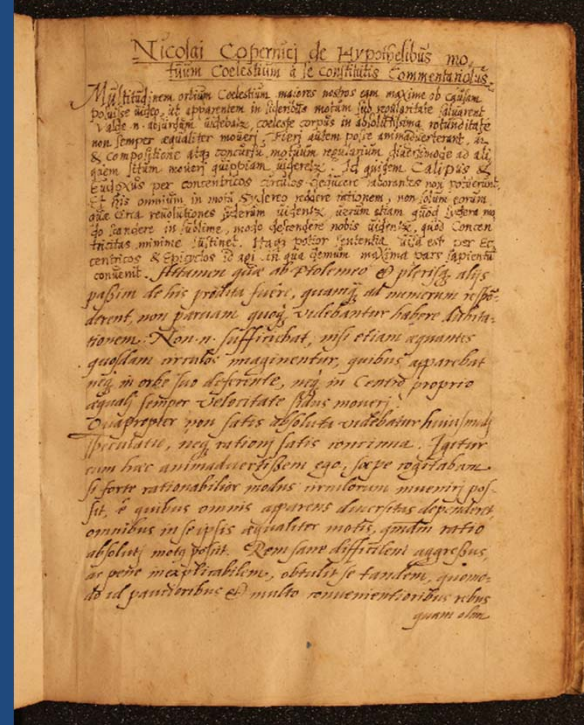 Nicolai Copernici de Hypothesibus mo,
tuum Coelestium à se constitutis Commentariolus.
Multitudinem orbium Coelestium maiores nostros eam maxime ob causam
posuisse uideo, ut apparentem in sideribus motum sub regularitate saluarent
Valde n. absurdum uidebatur, coeleste corpus in absolutissima rotunditate
non semper aequaliter moueri. Fieri autem posse animaduerterant, ut
& compositione atq concursu motuum regularium diuersimode ad ali
quem situm moueri quippiam uideretur. Id quidem Calipus &
Eudoxus per concentricos circulos deducere laborantes non potuerunt,
et his omnium in motu Sydereo reddere rationem, non solum eorum
que circa reuolutiones siderum uidentur, uerum etiam quod sydera mo
do scandere in sublime, modo descendere nobis uidentur, quod Concen
tricitas minime sustinet. Itaq potior sententia uisa est per Ec
centricos & Epiciclos id agi in qua demum maxima pars sapientum
conuenit. Attamen quae ab Ptolemeo & plerisq alijs
passim de his prodita fuere, quamq ad numerum respon
derent non paruam quoq videbantur habere dubita
tionem. Non n. sufficiebat, nisi etiam aequantes
quosdam circulos imaginentur, quibus apparebat
neq in orbe suo deferente, neq in Centro proprio
aequali semper velocitate sidus moueri.
Quapropter non satis absoluta videbatur huiusmodj
speculatio, neq rationj satis concinna. Igitur
cum haec animaduertissem ego, saepe cogitabam
si forte rationabilior modus circulorum inuenirj pos-
sit è quibus omnis apparens diuersitas dependeret,
omnibus in seipsis aequaliter motis, quemadm ratio
absolutj motq poscit. Rem sane difficilem aggressus,
ac pene inexplicabilem, obtulit se tandem, quomo-
do id paucioribus & multo conuenientioribus rebus
quam olim